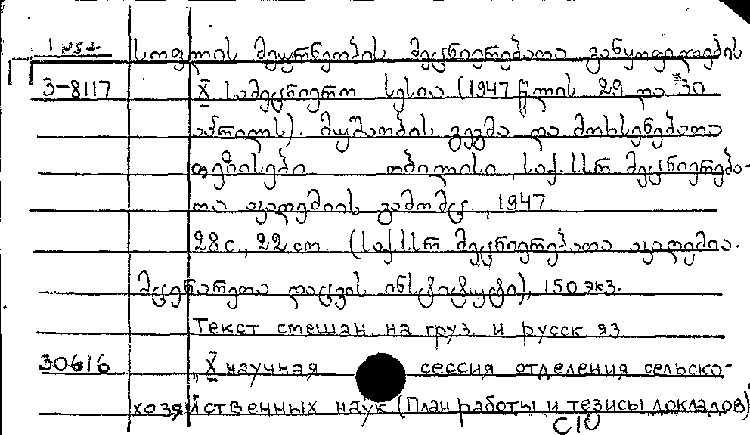 სოფლის მეურნეობის მეცნიერებათა განყოფილების
3-8117 X სამეცნიერო სესია (1947 წლის 29 და 30
აპრილს). მუშაობის გეგმა და მოხსენებათა
თეზისები თბილისი, საქ.სსრ მეცნიერება-
თა აკადემიის გამომც., 1947
28с., 22см (საქ.სსრ მეცნიერებათა აკადემია.
მცენარეთა დაცვის ინსტიტუტი), 150экз.
Текст смешан на груз. и русск яз
30616 X научная сессия отделения сельско-
хозяйственных наук (План работы и тезисы докладов)
С10